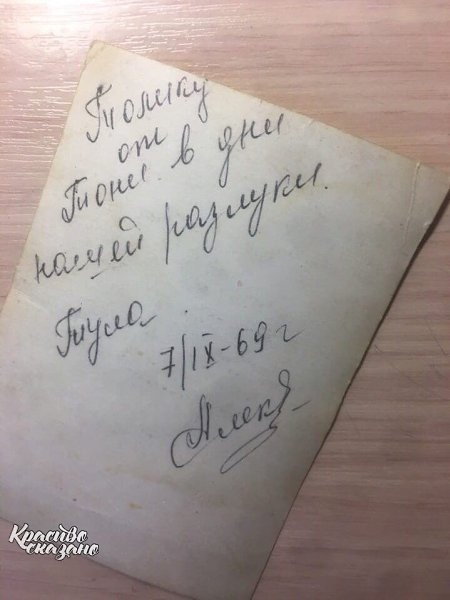 Толику
от
Тони в дни
нашей разлуки.
Тула
7/IX-69 г
Красиво
сказано